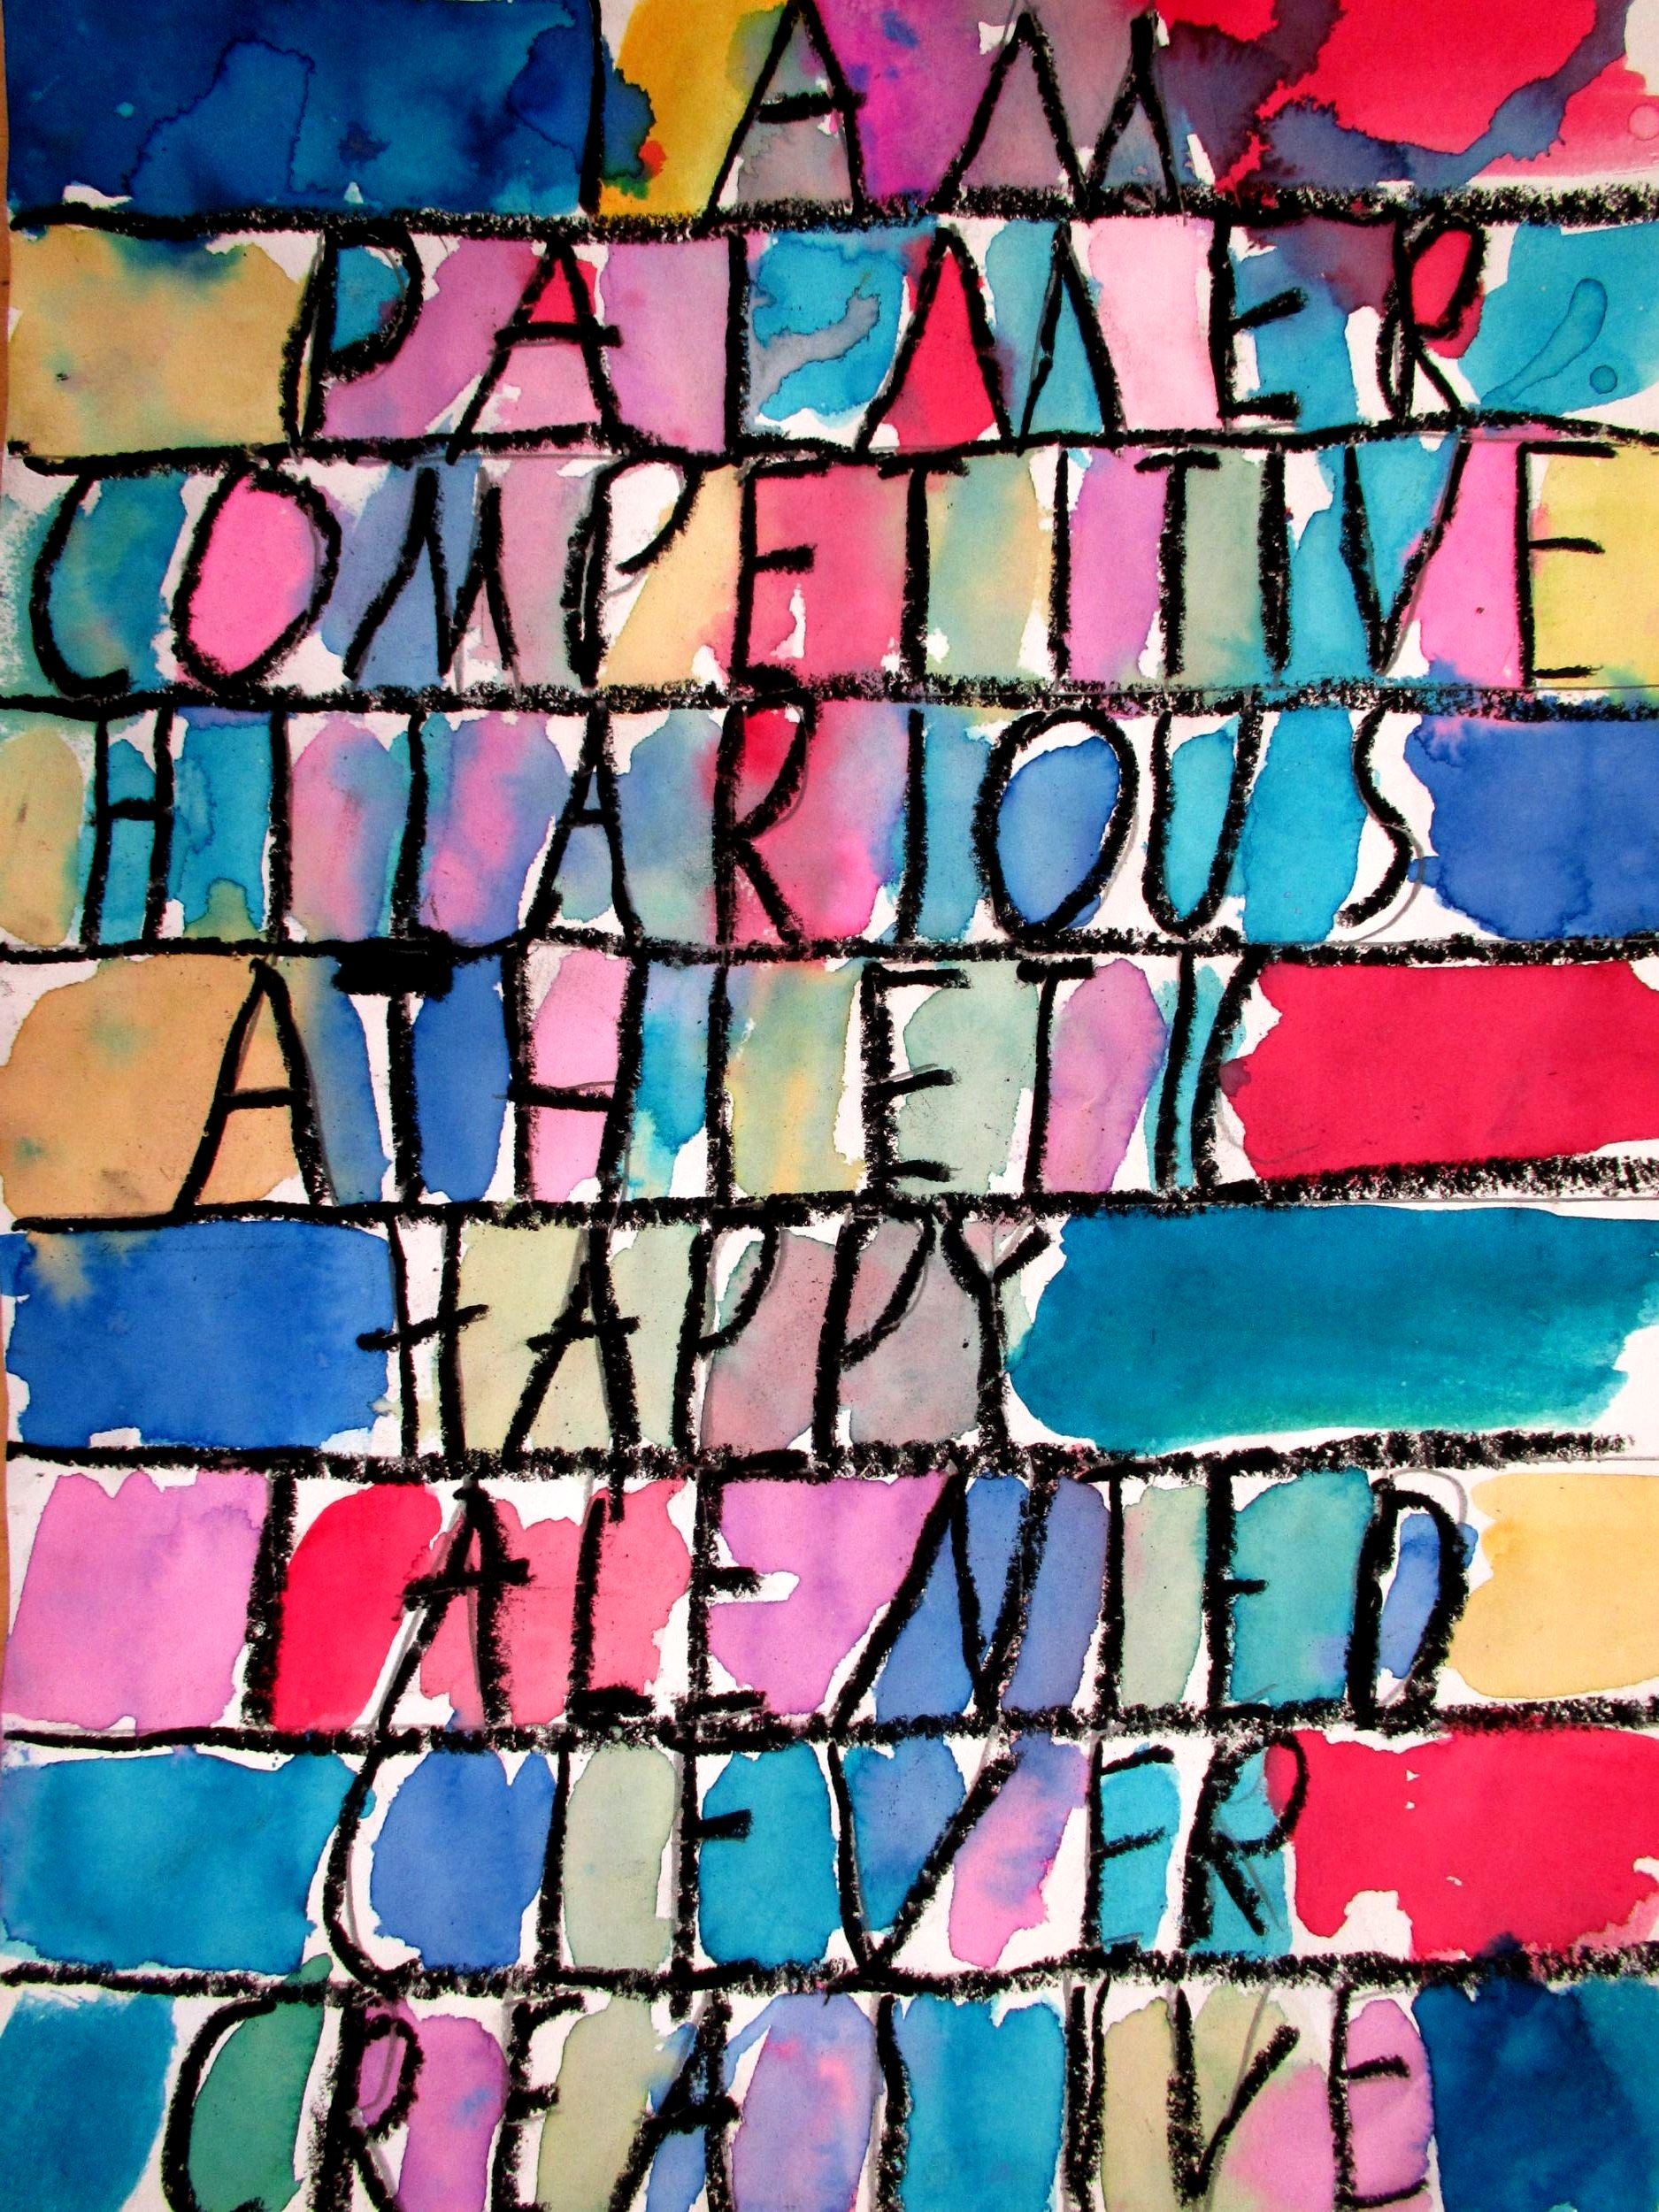 I AM
PALMER
COMPETITIVE
HILARIOUS
ATHLETIC
HAPPY
TALENTED
CLEVER
CREATIVE